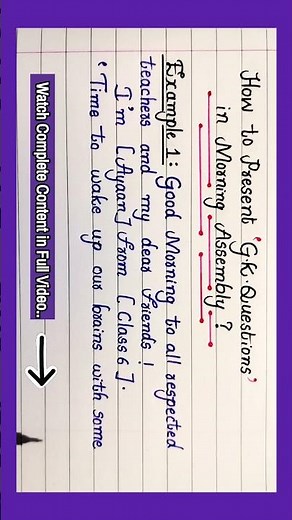 How to Present 'G.K. Questions'
in Morning Assembly ?
Example 1: Good Morning to all respected
teachers and my dear friends !
I'm [Ayaan] from [Class 6].
• Time to wake up our brains with some
Watch Complete Content in Full Video..